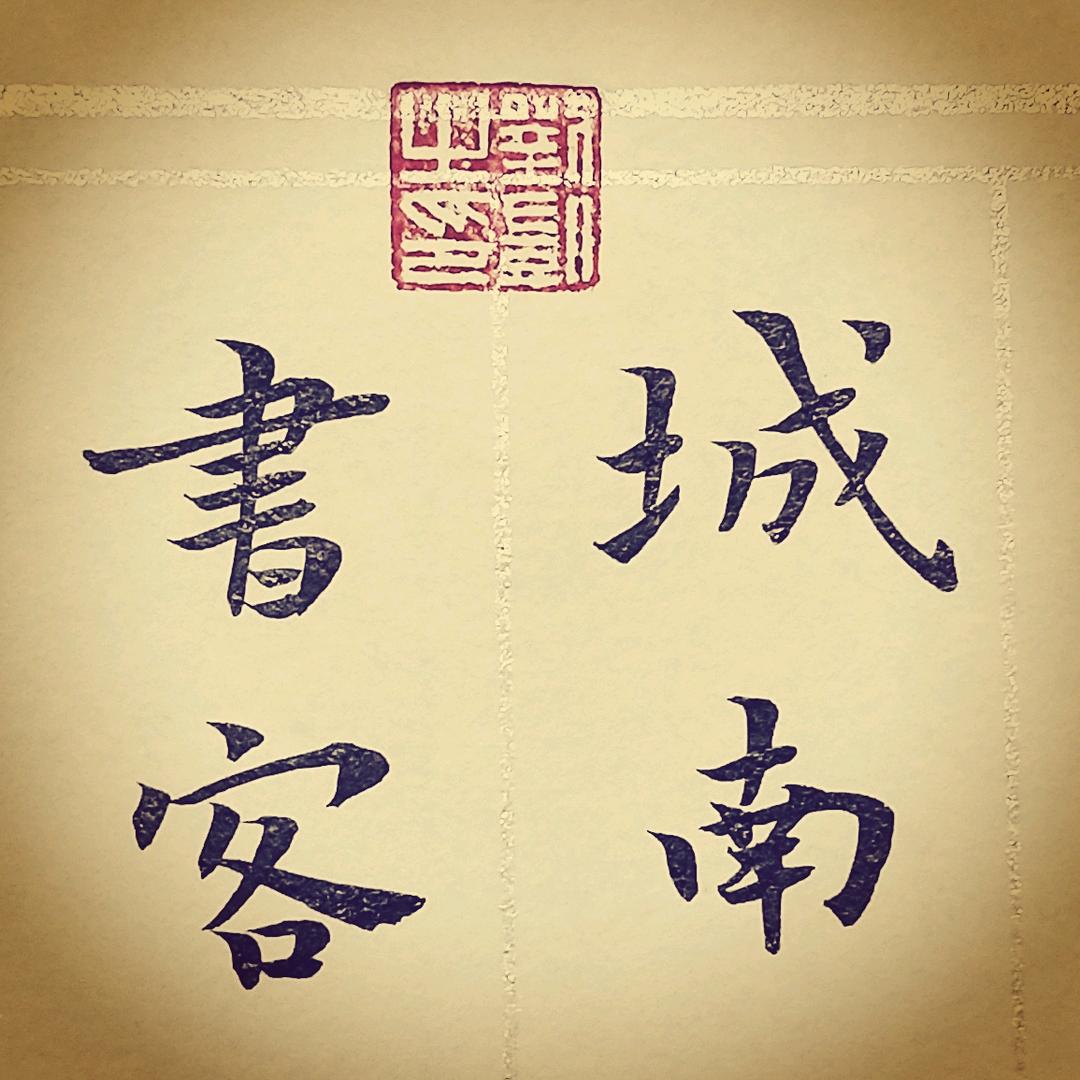 城南
書客